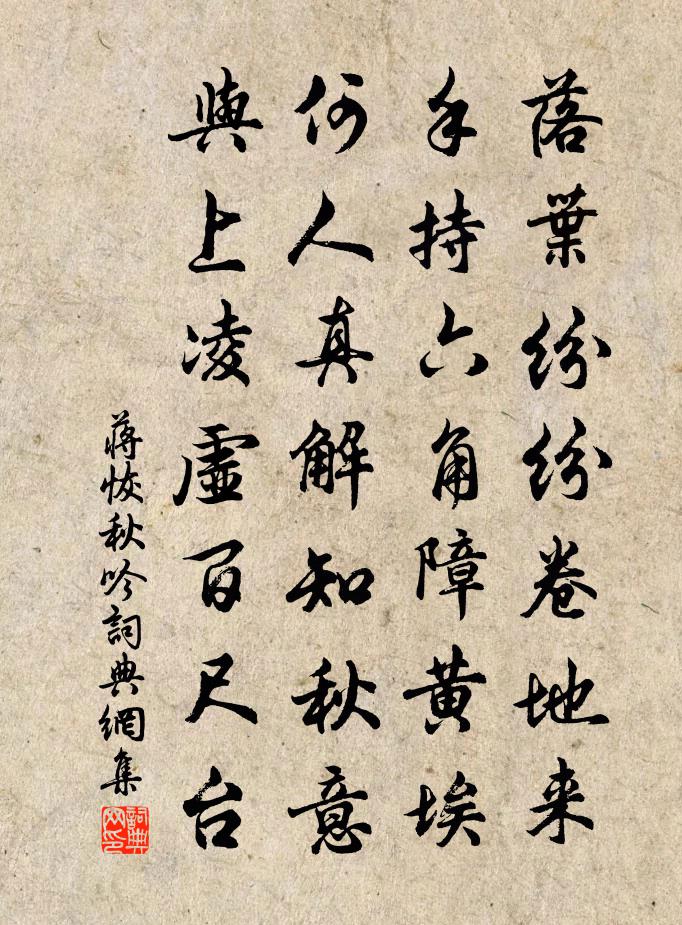 落葉紛紛卷地来
手持六角障黄埃
何人真解知秋意
與上凌虛百尺台
蒋恢秋吟詞典網集
詞典网印